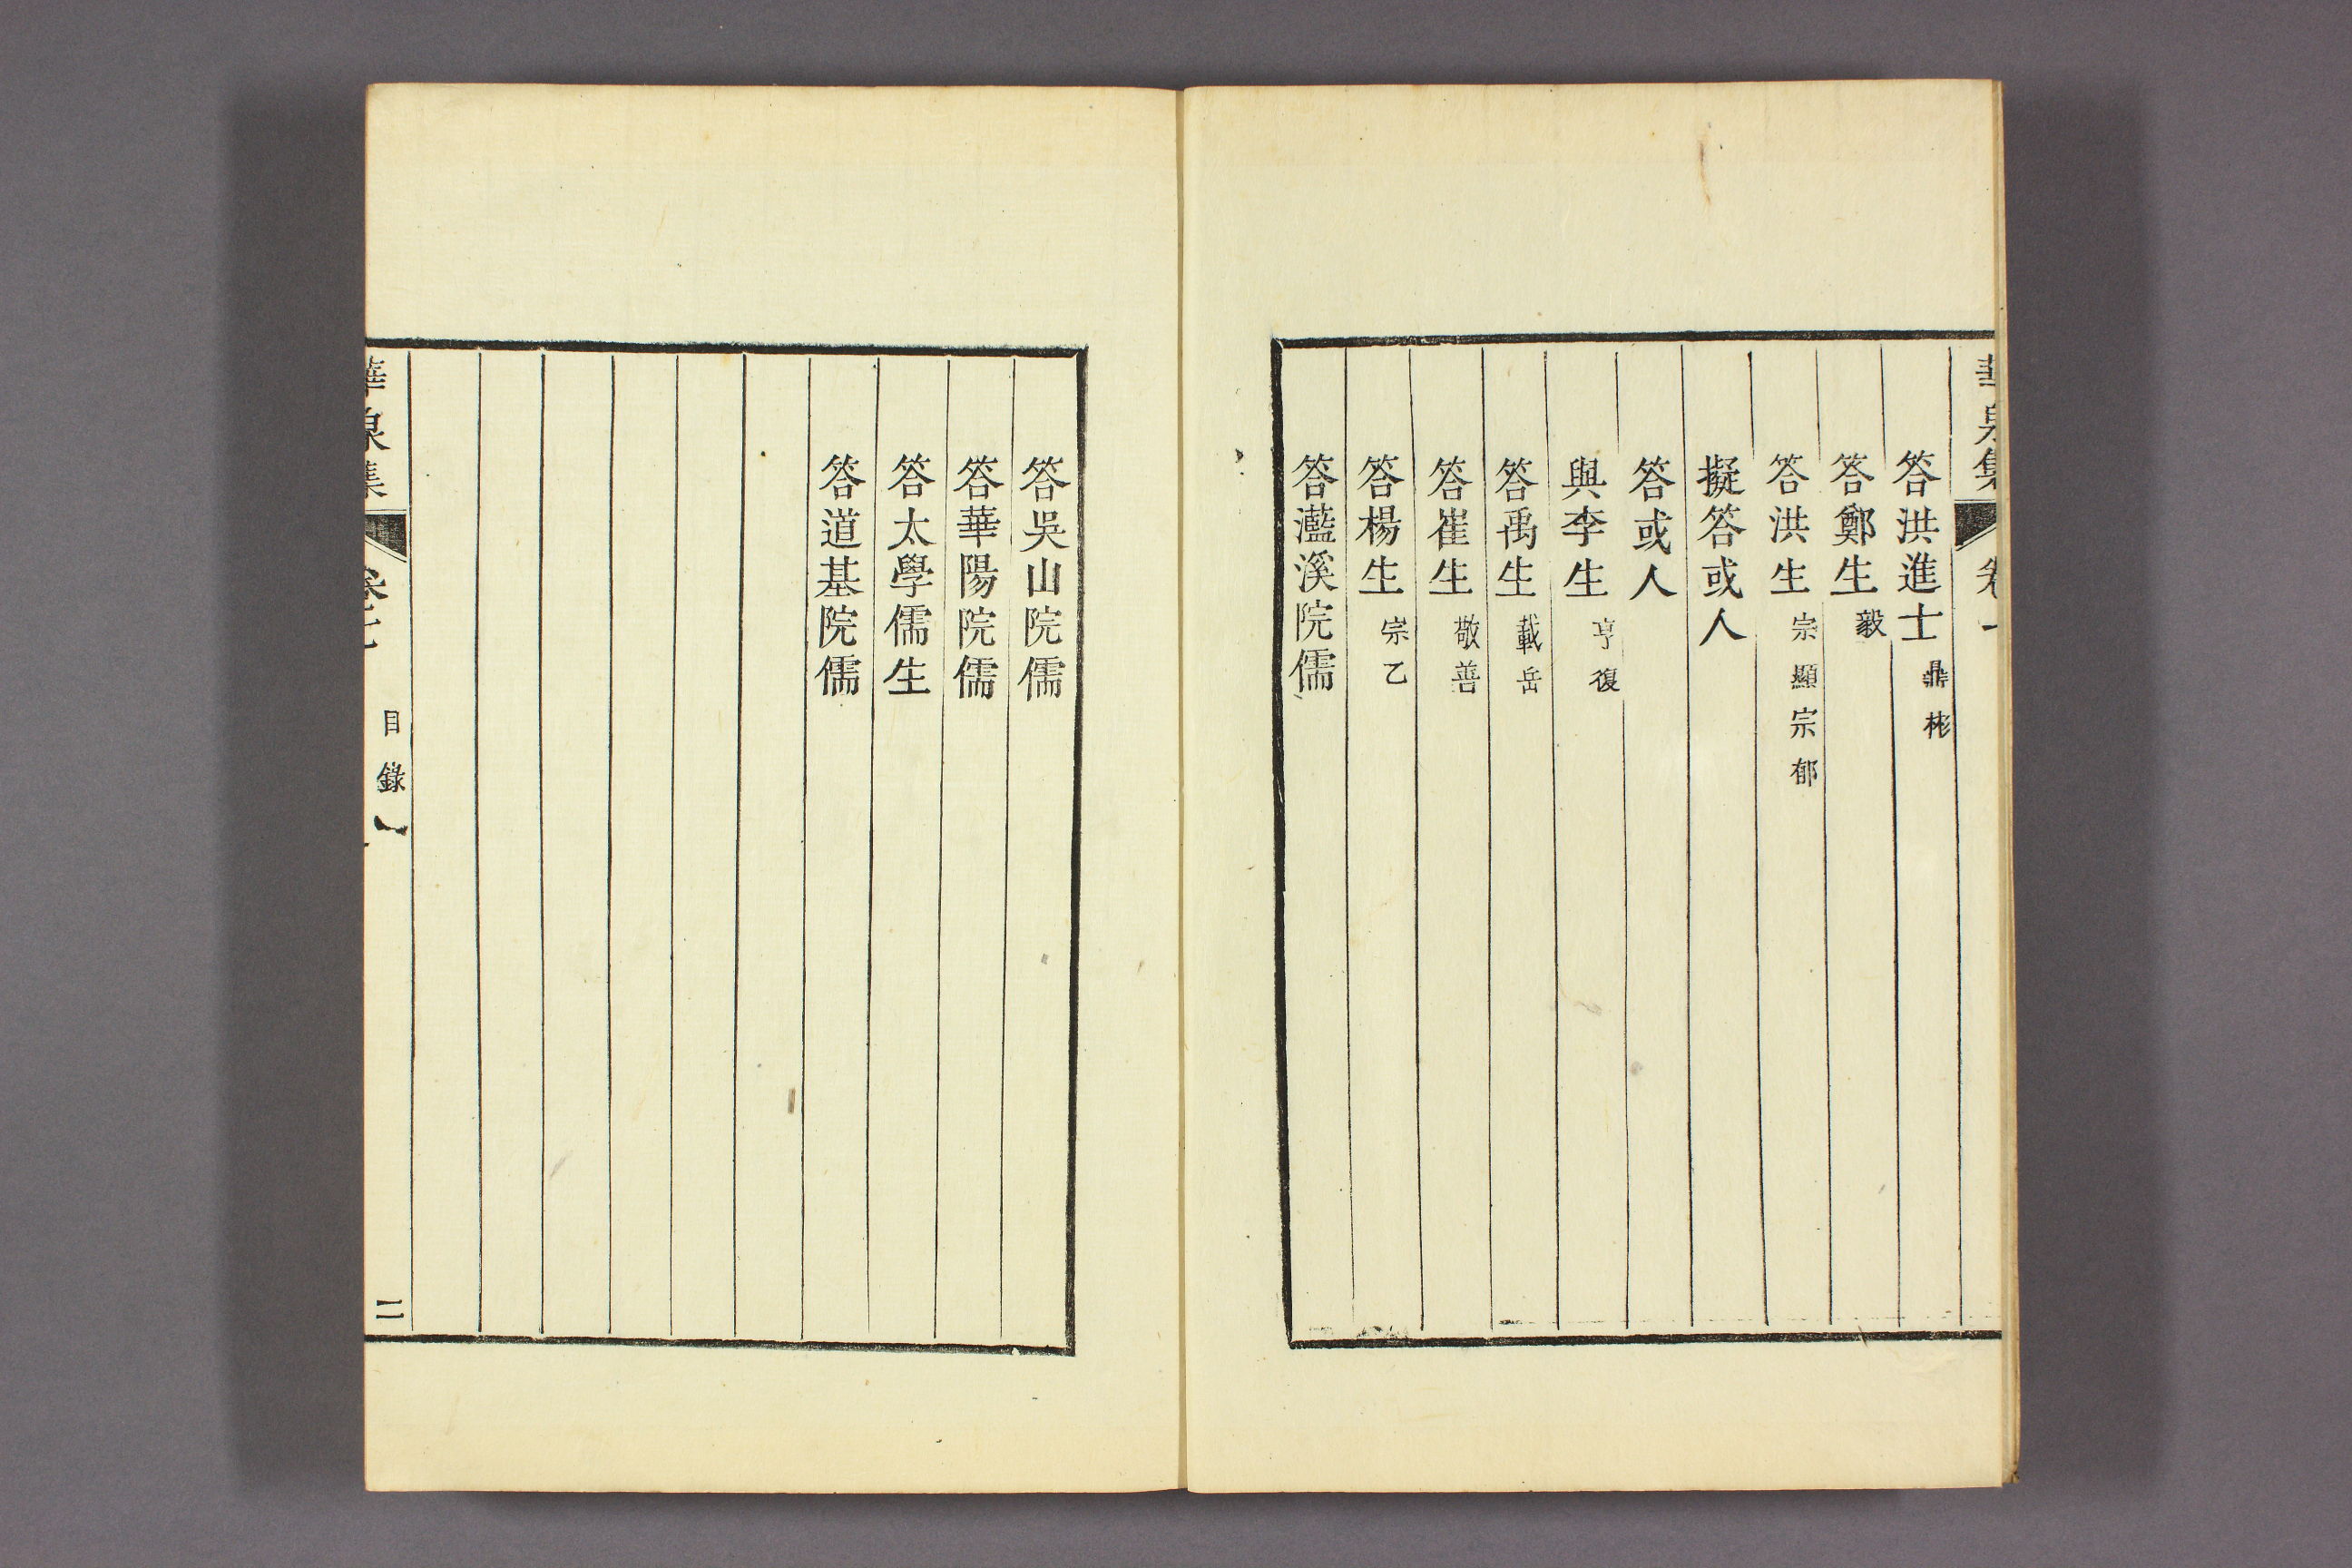 華泉集
答洪進士 鼎彬
答鄭生 毅
答洪生 宗顯 宗郁
擬答或人
答或人
與李生 亨復
答禹生 載岳
答崔生 敬善
答楊生 宗乙
答灆溪院儒
答吳山院儒
答華陽院儒
答太學儒生
答道基院儒
華泉集 卷七 目錄 二